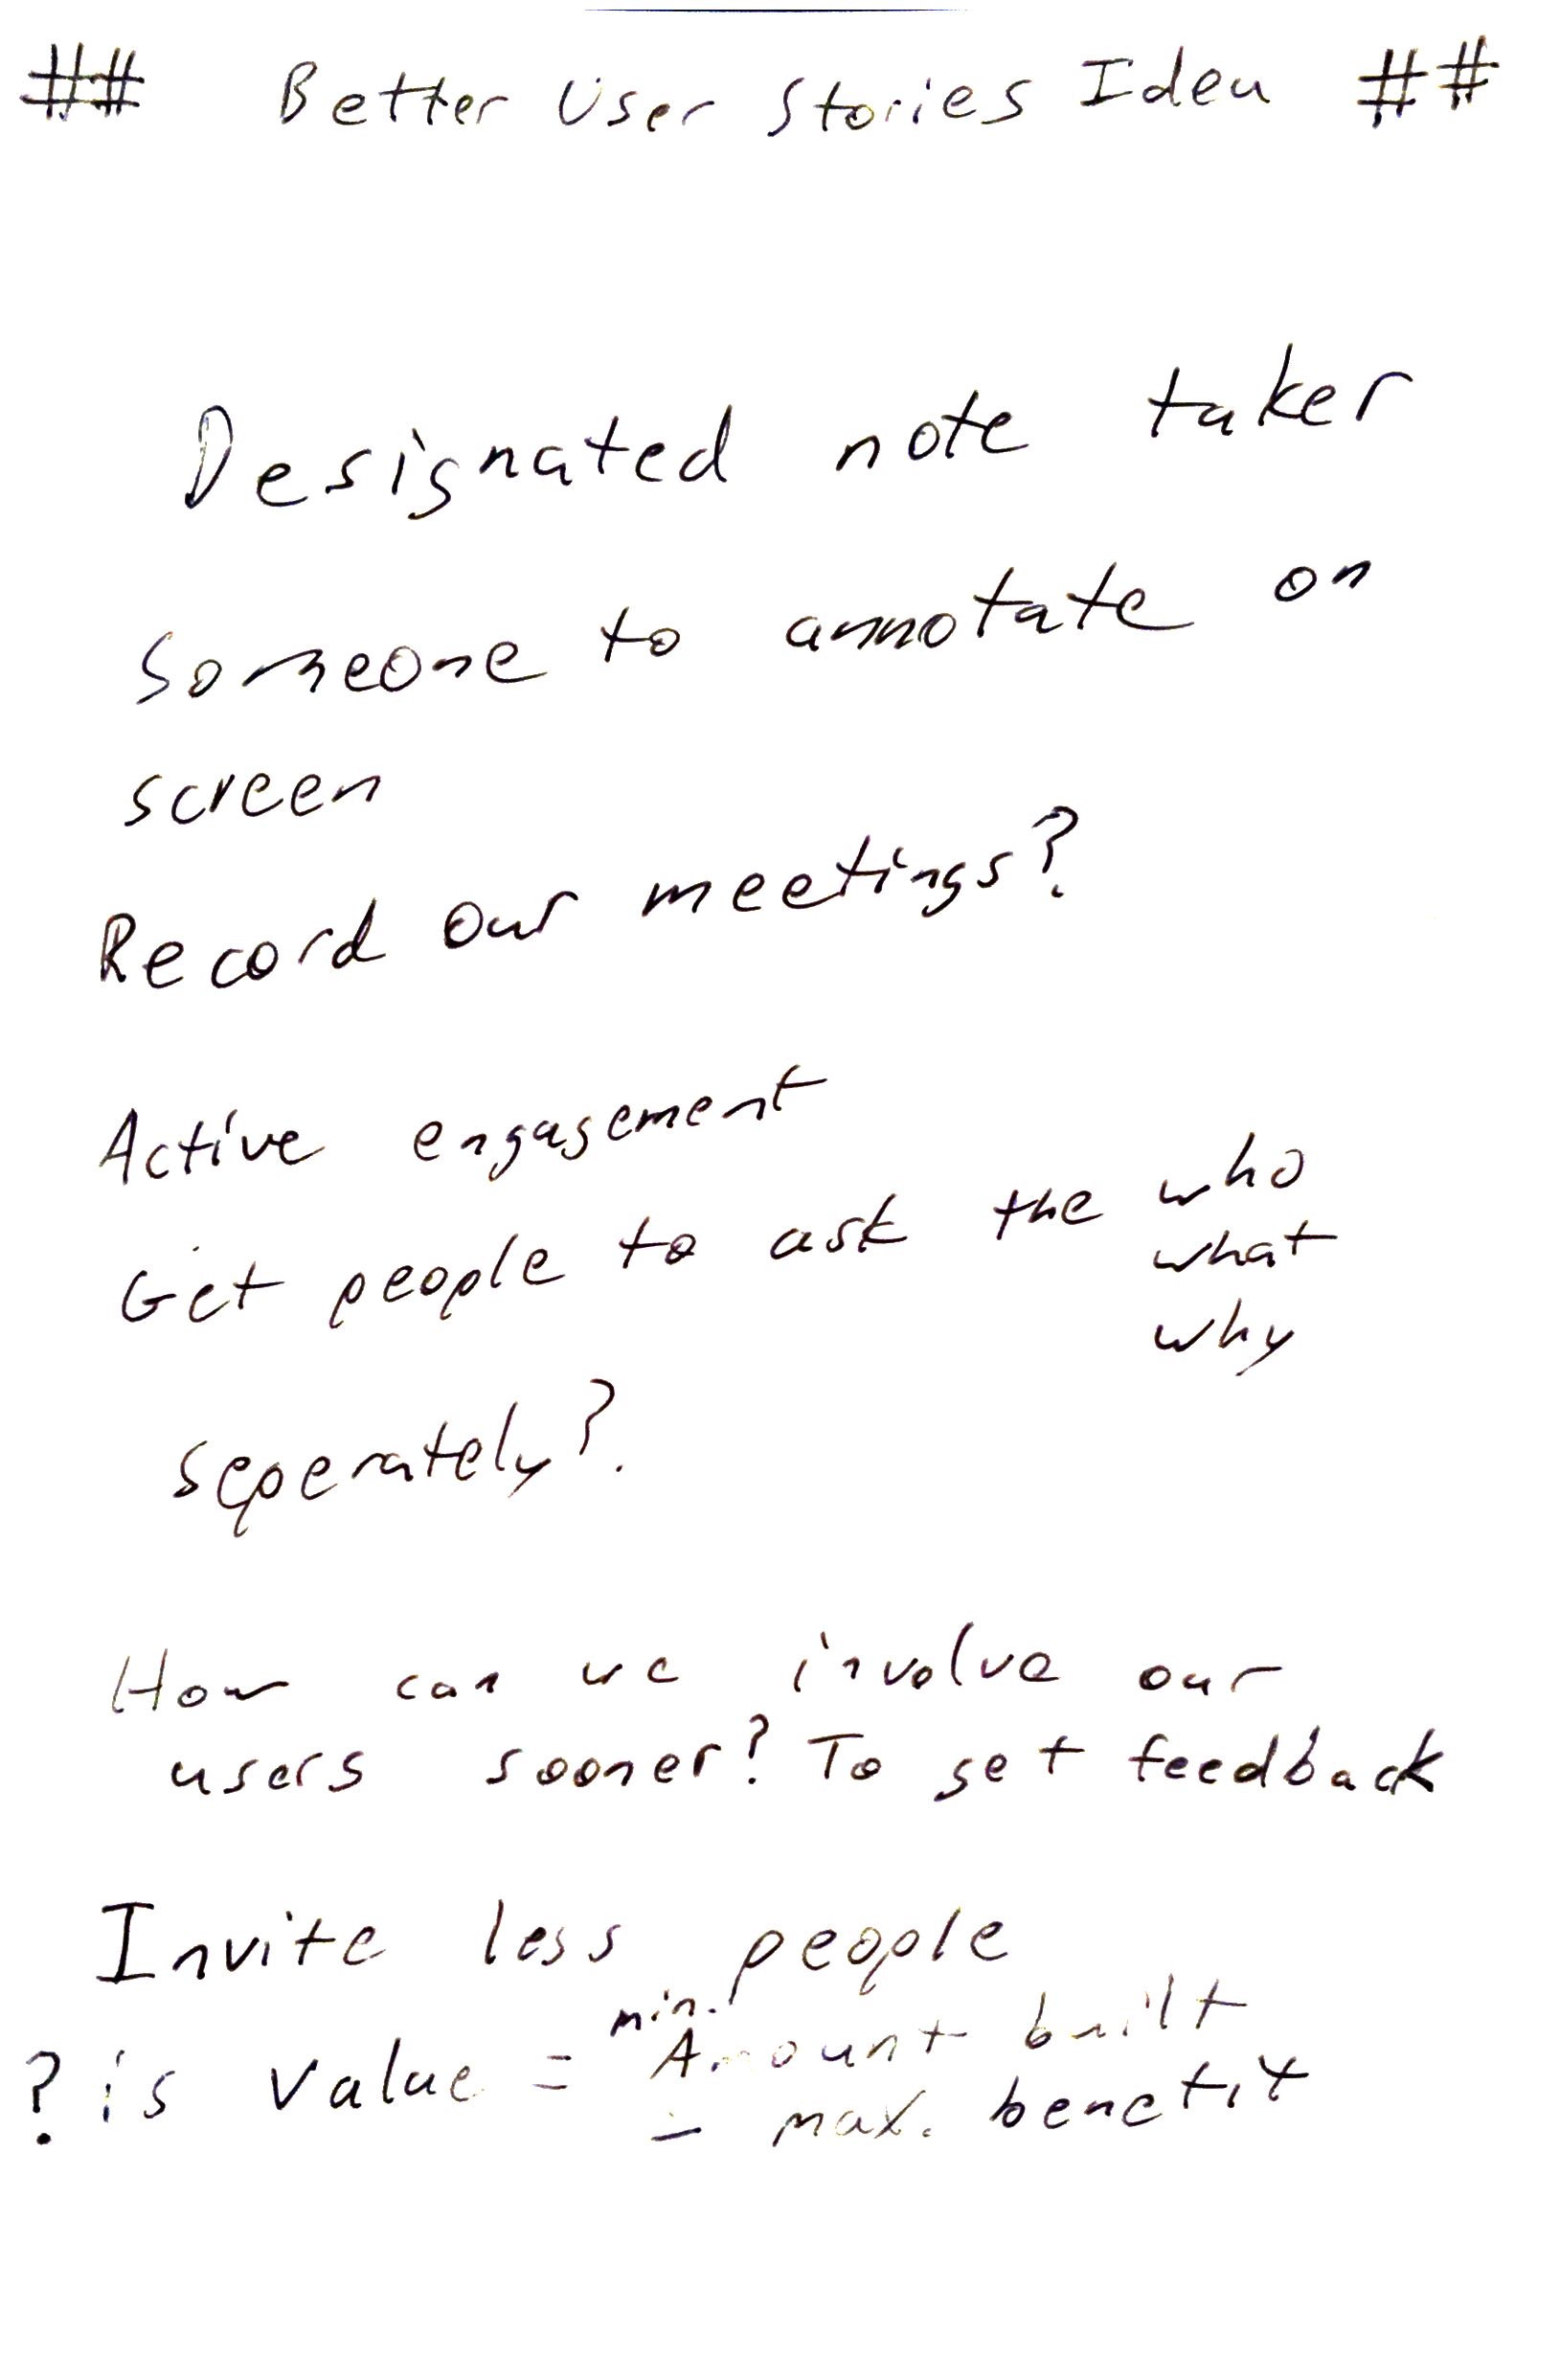 ## Better User Stories Idea ##
Designated note taker
Someone to annotate on
screen
Record our meetings?
Active engagement
Get people to ask the who
what
why
seperately?
How can we involve our
users sooner? To get feedback
Invite less people
min.
? is value = Amount built
- max. benefit